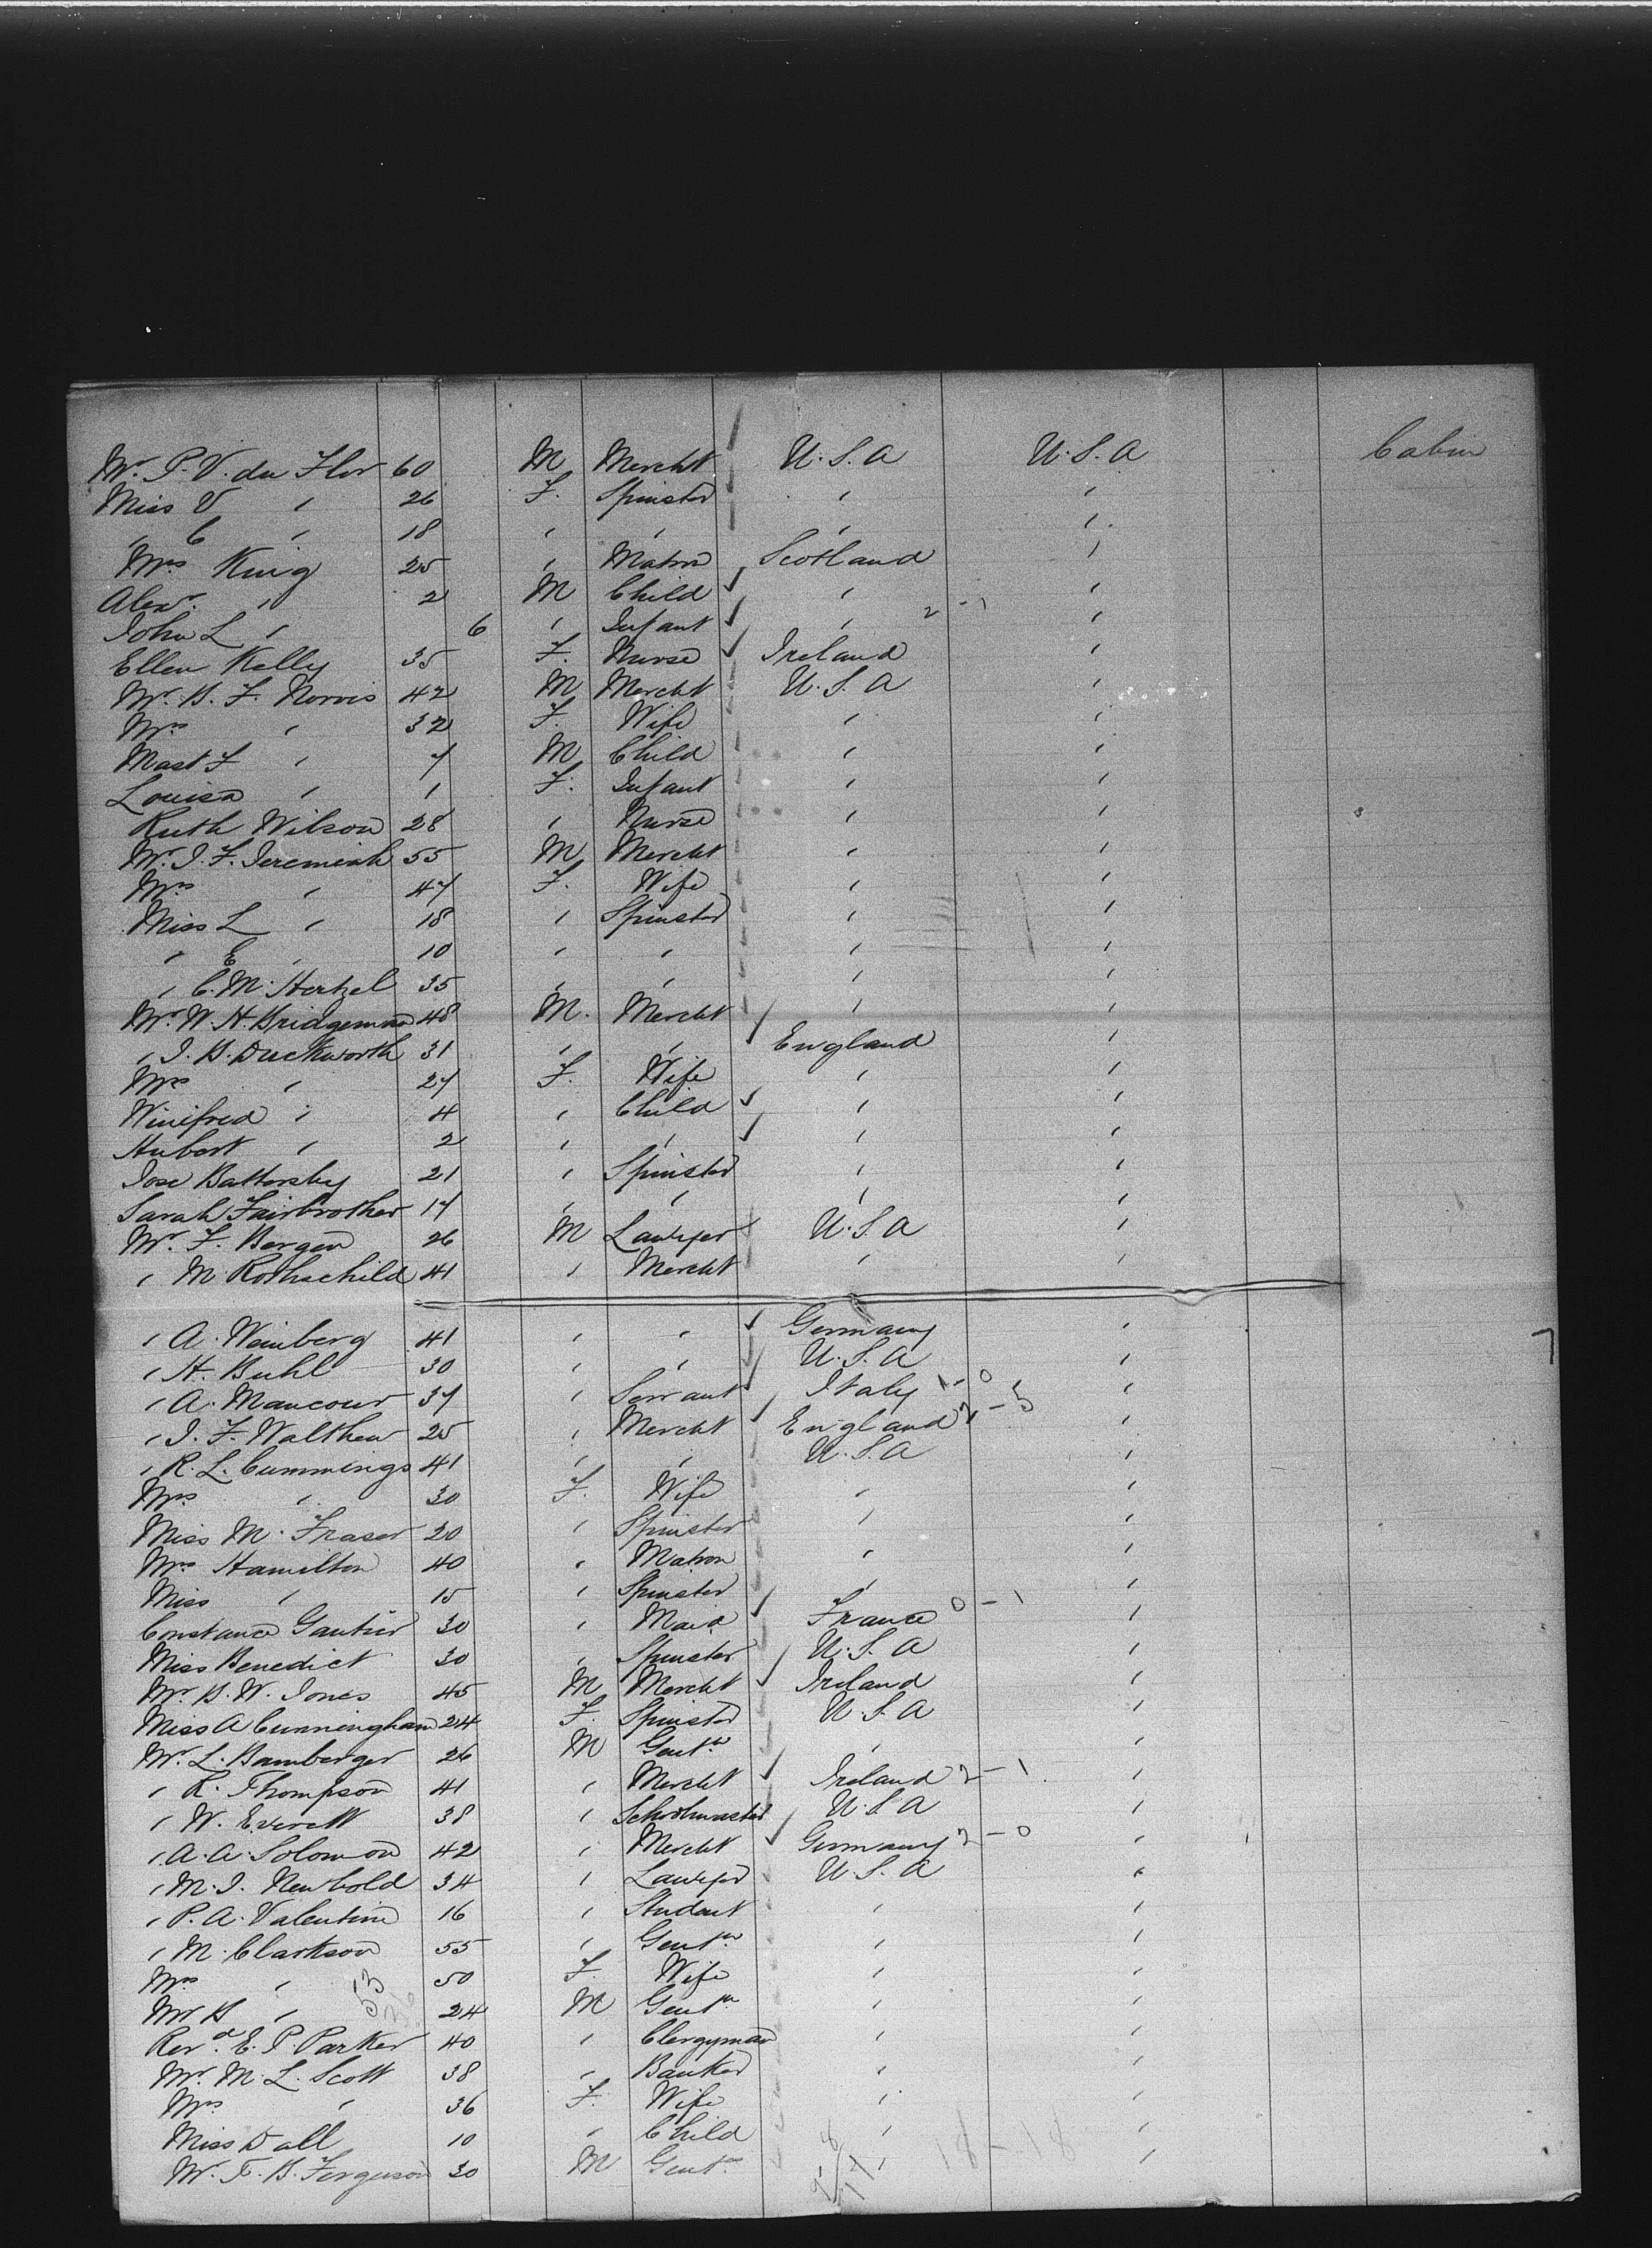 Mr. P. V. du Flor 60 M Mercht U.S.A U.S.A Cabin
Miss V " 26 F. Spinster " "
" C " 18 " " " "
Mrs King 25 " Matron Scotland "
Alexr. " 2 M Child " "
John L " 6 " Infant " 2-1 "
Ellen Kelly 35 F. Nurse Ireland "
Mr. B. F. Norris 42 M Mercht U.S.A "
Mrs " 32 F. Wife " "
Mast F " 7 M Child " "
Louisa " 1 F. Infant " "
Ruth Wilson 28 " Nurse " "
Mr. J. F. Jeremiah 55 M Mercht " "
Mrs " 47 F. Wife " "
Miss L " 18 " Spinster " "
" E " 10 " " " "
" C. M. Hertzel 35 " " " "
Mr. W. H. Bridgeman 48 M. Mercht " "
" J. B. Duckworth 31 " " England "
Mrs " 27 F. Wife " "
Winifred " 4 " Child " "
Hubert " 2 " " " "
Jose Battersby 21 " Spinster " "
Sarah Fairbrother 17 " " " "
Mr. F. Bergen 26 M Lawyer U.S.A "
" M Rothschild 41 " Mercht " "
" A. Weinberg 41 " " Germany "
" H. Buhl 30 " " U.S.A "
" A. Mancour 37 " Servant Italy 1-0 "
" J. F. Walthew 25 " Mercht England 2-5 "
" R. L. Cummings 41 " " U.S.A "
Mrs " 30 F. Wife " "
Miss M. Fraser 20 " Spinster " "
Mrs Hamilton 40 " Matron " "
Miss " 15 " Spinster " "
Constance Gautier 30 " Maid France 0-1 "
Miss Benedict 30 " Spinster U.S.A "
Mr. B. W. Jones 45 M Mercht Ireland "
Miss A Cunningham 24 F. Spinster U.S.A "
Mr. L. Bamberger 26 M Gentn " "
" R. Thompson 41 " Mercht Ireland 2-1 "
" W. Everett 38 " Schoolmaster U.S.A "
" A. A. Solomon 42 " Mercht Germany 2-0 "
" M. J. Newbold 34 " Lawyer U.S.A "
" P. A. Valentine 16 " Student " "
" M. Clarkson 55 " Gentn " "
Mrs " 53 50 F. Wife " "
Mr B " 24 M Gentn " "
Revd. E. P. Parker 40 " Clergyman " "
Mr. M. L. Scott 38 " Banker " "
Mrs " 36 F. Wife " "
Miss Dall 10 " Child " "
Mr. F. B. Ferguson 30 M Gentn " 18-18 "